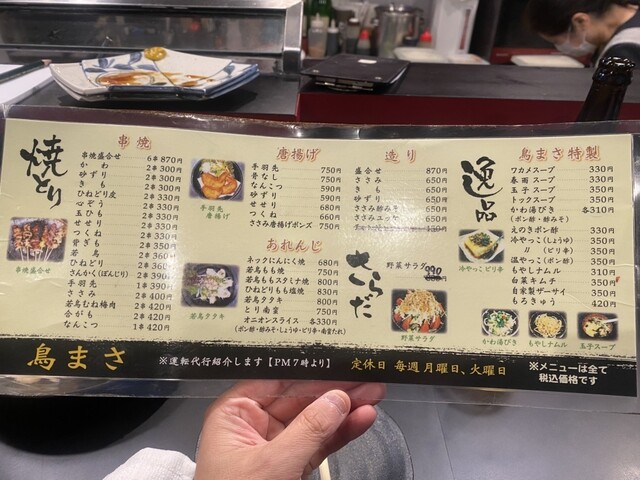 焼とり
串焼
串焼盛合せ 6串 870円
かわ 2串 300円
砂ずり 2串 300円
きも 2串 300円
ひねどり皮 2串 330円
心ぞう 2串 330円
玉ひも 2串 330円
せせり 2串 330円
つくね 2串 330円
背ぎも 2串 350円
若鳥 2串 360円
ひねどり 2串 360円
さんかく(ぼんじり) 2串 390円
手羽先 1串 390円
ささみ 2串 400円
若鳥ひも梅肉 2串 420円
合がも 2串 420円
なんこつ 1串 420円
串焼盛合せ
唐揚げ
手羽先 750円
骨なし 750円
なんこつ 590円
砂ずり 590円
せせり 680円
つくね 660円
ささみ唐揚げポンズ 750円
手羽先
唐揚げ
あれんじ
ネックにんにく焼 680円
若鳥もも焼 750円
若鳥ももスタミナ焼 800円
ひねどりもも塩焼 830円
若鳥タタキ 800円
とり南蛮 750円
オニオンスライス 各330円
(ポン酢・酢みそ・しょうゆ・ピリ辛・南蛮たれ)
若鳥タタキ
造り
盛合せ 870円
ささみ 650円
きも 650円
砂ずり 650円
ささみ酢みそ 650円
ささみユッケ 650円
さらだ
野菜サラダ
野菜サラダ
逸品
鳥まさ特製
ワカメスープ 330円
春雨スープ 330円
玉子スープ 350円
トックスープ 350円
かわ湯びき 各310円
(ポン酢・酢みそ)
えのきポン酢 330円
冷やっこ(しょうゆ) 350円
〃(ピリ辛) 350円
温やっこ(ポン酢) 350円
もやしナムル 310円
白菜キムチ 350円
自家製ザーサイ 350円
もろきゅう 420円
冷やっこピリ辛
かわ湯びき
もやしナムル
玉子スープ
鳥まさ
※運転代行紹介します【PM7時より】
定休日 毎週月曜日、火曜日
※メニューは全て
税込価格です